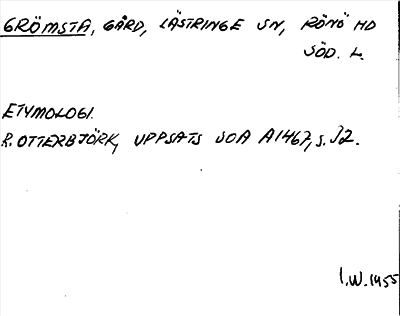 GRÖMSTA, GÅRD, LÄSTRINGE SN, RÖNÖ HD
SÖD. L.
ETYMOLOGI.
R. OTTERBJÖRK, UPPSATS SOA A1467, S. 32.
I.W. 1955